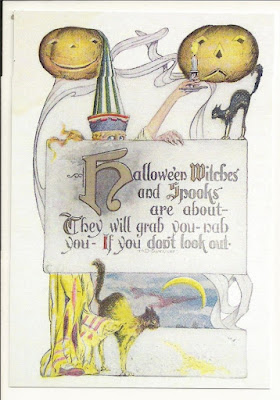 Hallowe'en Witches
and Spooks
are about-
They will grab you-nab
you-If you don't look out-